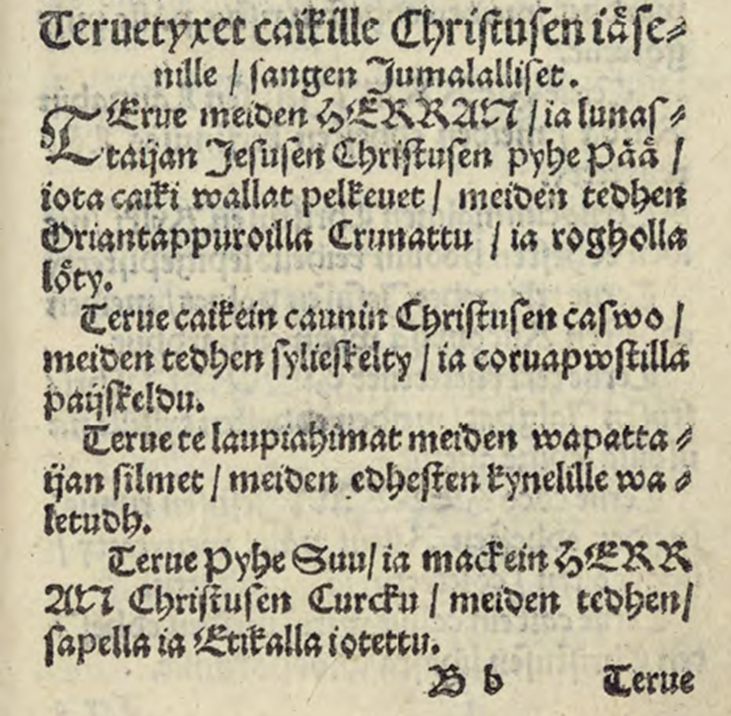 Teruetyxet caikille Christusen iäse⸗
nille / sangen Jumalalliset.
TErue meiden HERRAN / ia lunas⸗
taijan Jesusen Christusen pyhe Pää /
iota caiki wallat pelkeuet / meiden tedhen
Oriantappuroilla Crunattu / ia rogholla
löty.
Terue caikein caunin Christusen caswo /
meiden tedhen sylieskelty / ia coruapwstilla
paijskeldu.
Terue te laupiahimat meiden wapatta⸗
ijan silmet / meiden edhesten kynelille wa⸗
letudh.
Terue Pyhe Suu / ia mackein HERR
AN Christusen Curcku / meiden tedhen /
sapella ia Etikalla iotettu.
B b Terue